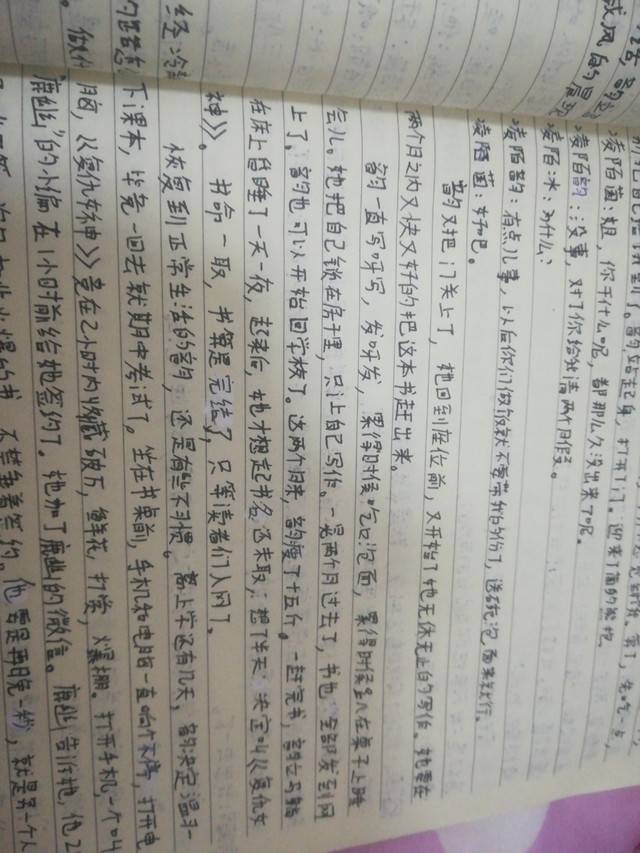 成风的自尿
凌陌茵:姐,你干什么呢,都那么久没出来了呢。
凌陌韵:没事,对了你给我请两个月假。
凌陌冰:为什么?
凌陌韵:有点儿事,以后你们做饭就不要带我的份了,送碗泡面来就行。
凌陌茵:好吧。
韵又把门关上了,她回到座位前,又开始了她无休无止的写作。她要在
两个月之内又快又好的把这本书赶出来。
韵一直写呀写,发呀发,累得时候吃口泡面,累得时候趴在桌子上睡
会儿。她把自己锁在房子里,只让自己写作。一晃两个月过去了,书也全部发到网
上了。韵也可以开始回学校了。这两个月来,韵瘦了十五斤。一赶完书,韵立马躺
在床上昏睡了一天一夜,起来后,她才想起书名还未取,想了半天,决定叫《复仇女
神》。 书命一取,书算是完结了,只等读者们入网了。
恢复到正常生活的韵,还是有些不习惯。离上学还有几天,韵决定温习一
下课本,毕竟一回去就期中考试了。坐在书桌前,手机和电脑一直响个不停,打开电
脑,《复仇女神》竟在2小时内收藏破万,鲜花,打赏,爆棚。打开手机,一个叫
“鹿幽”的小编在1小时前给她签约了。她加了鹿幽的微信。鹿幽告诉她,他2